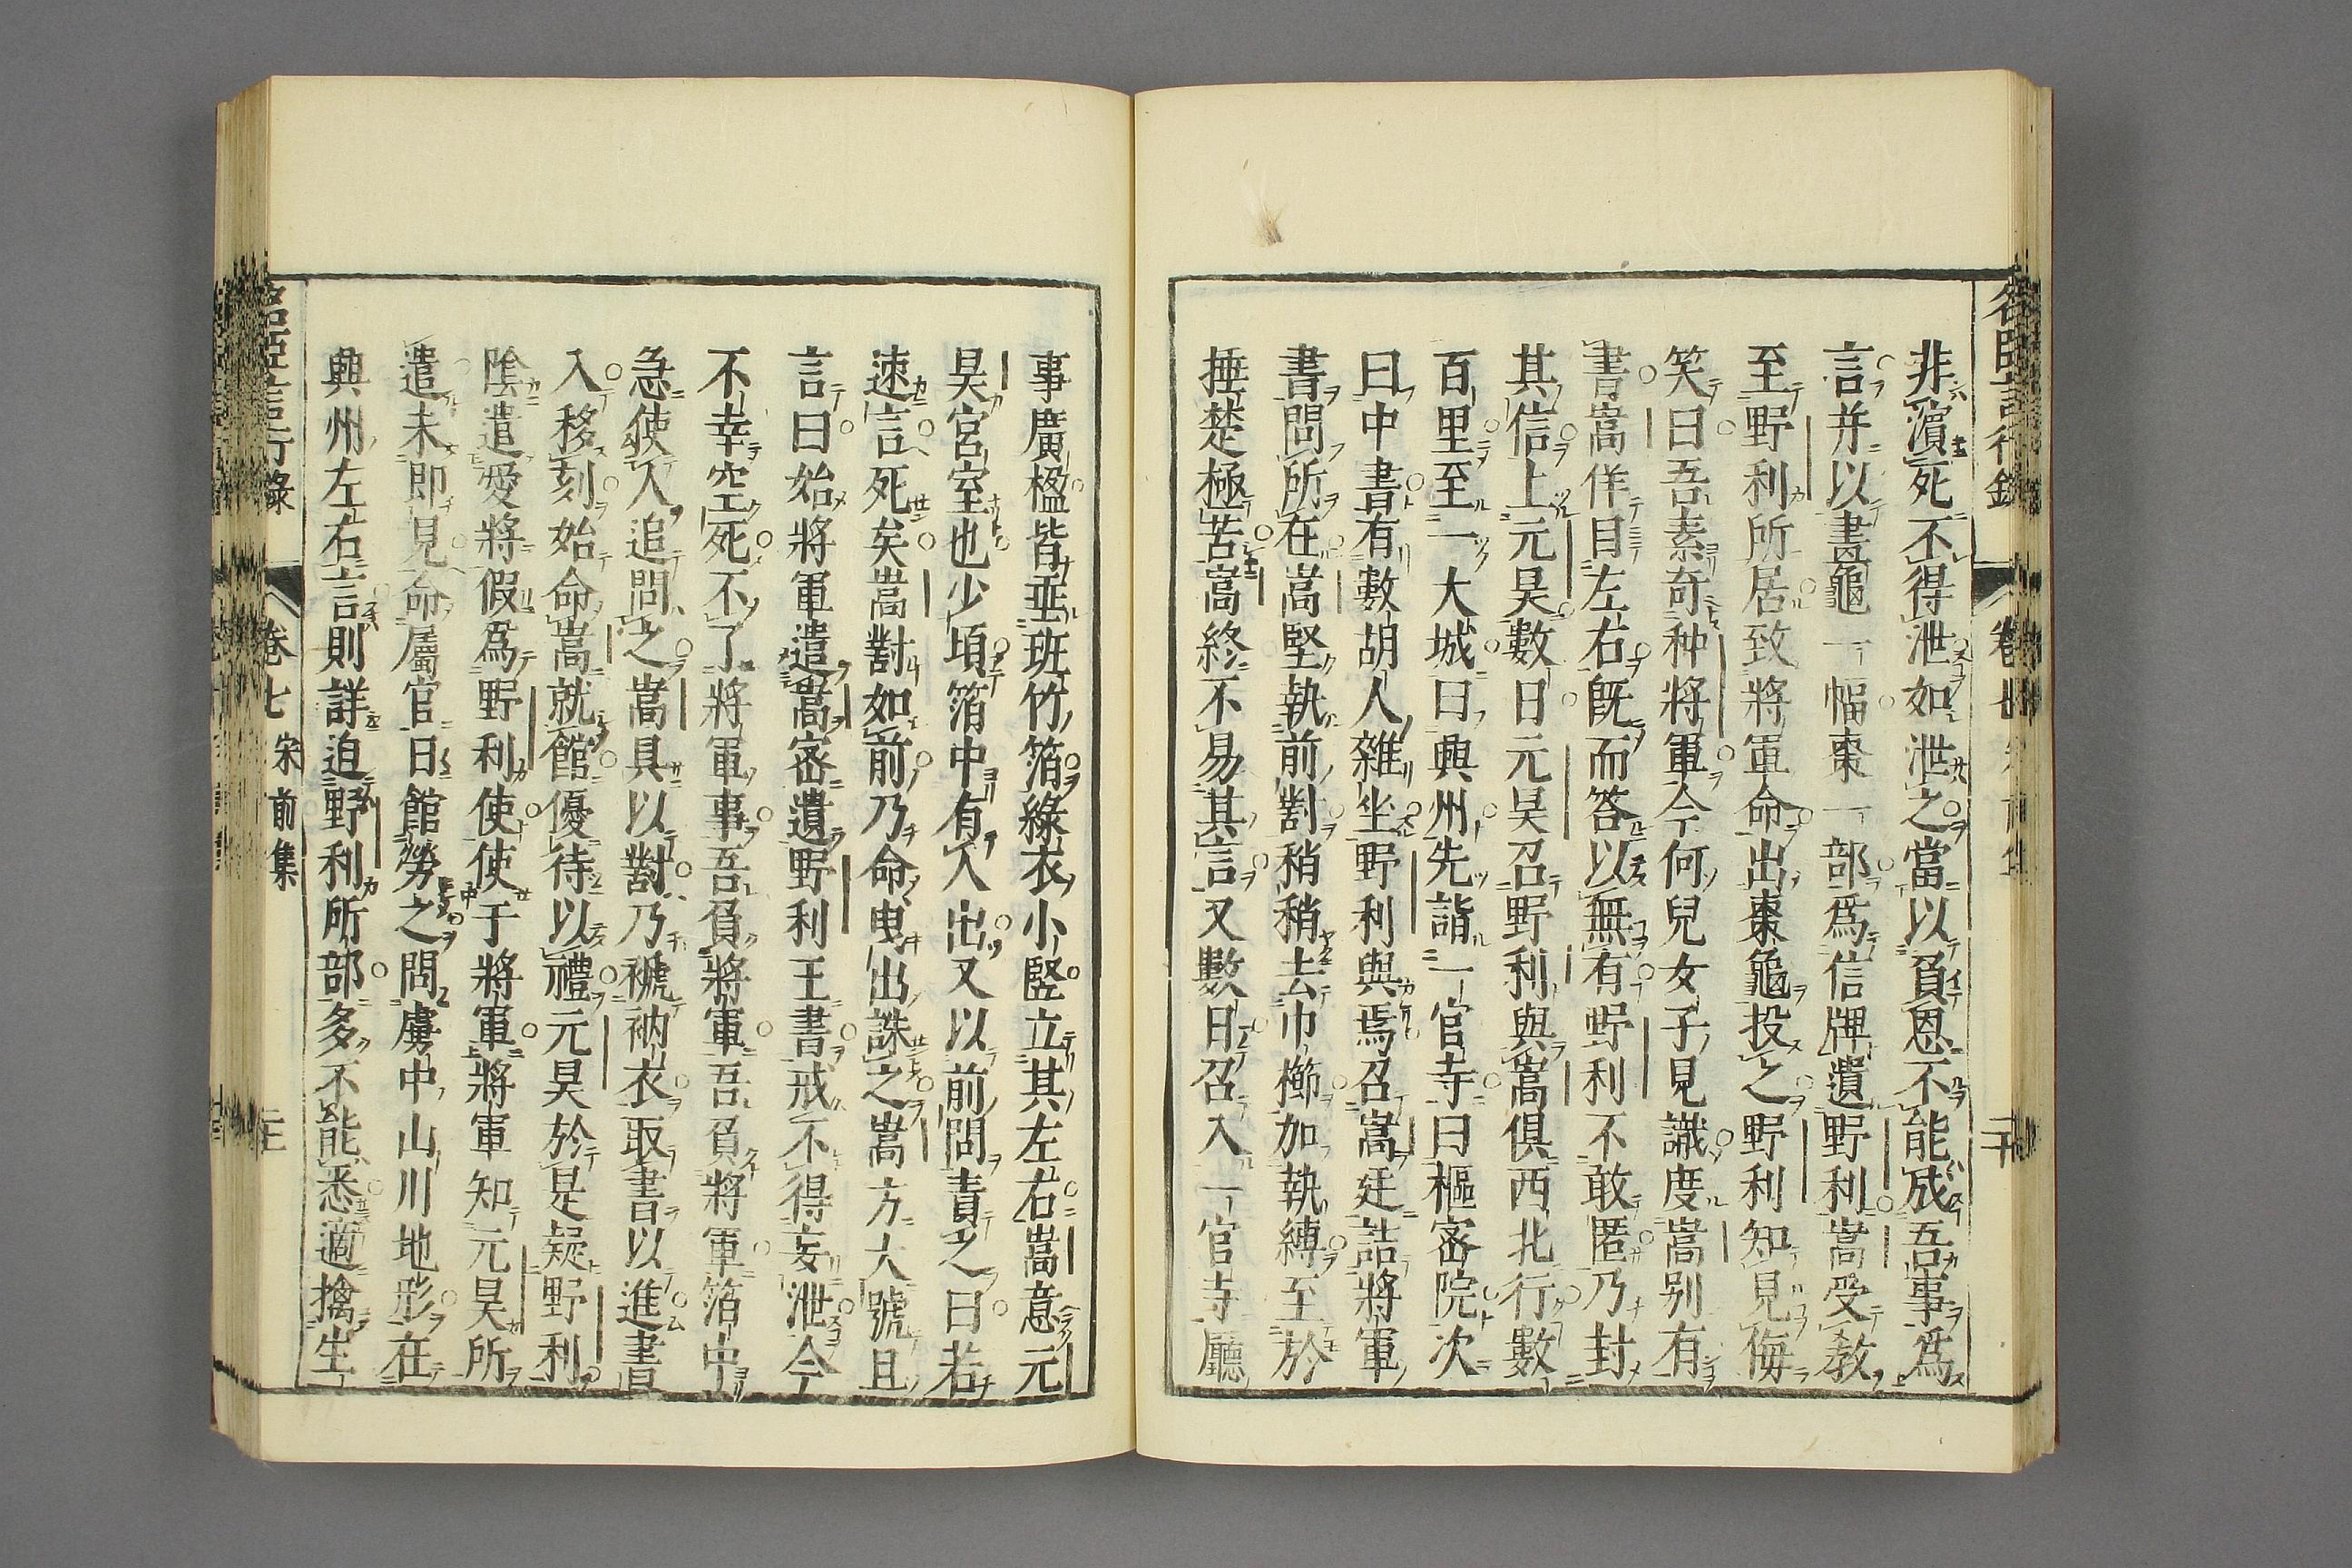 非濵死不得泄如泄之當以負恩不能成吾事爲
言并以畫龜一幅棗一部爲信牌遺野利嵩受教
至野利所居致將軍命出棗龜投之野利知見侮
笑曰吾素奇种將軍今何兒女子見識度嵩别有
書嵩佯目左右既而答以無有野利不敢匿乃封
其信上元昊數日元昊召野利與嵩俱西北行數
百里至一大城曰興州先詣一官寺曰樞宻院次
曰中書有數胡人雜坐野利與焉召嵩廷詰將軍
書問所在嵩堅執前對稍稍去巾櫛加執縛至於
捶楚極苦嵩終不易其言又數日召入一官寺廳
事廣楹皆垂班竹箔綠衣小竪立其左右嵩意元
昊宮室也少頃箔中有人出又以前問責之曰若
速言死矣嵩對如前乃命曳出誅之嵩方大號且
言曰始將軍遣嵩宻遺野利王書戒不得妄泄今
不幸空死不了將軍事吾負將軍吾負將軍箔中
急使人追問之嵩具以對乃褫衲衣取書以進書
入移刻始命嵩就館優待以禮元昊於是疑野利
陰遣愛將假爲野利使使于將軍將軍知元昊所
遣未即見命屬官日館勞之問虜中山川地形在
興州左右言則詳迫野利所部多不能悉適擒生
卷七 宋 前集